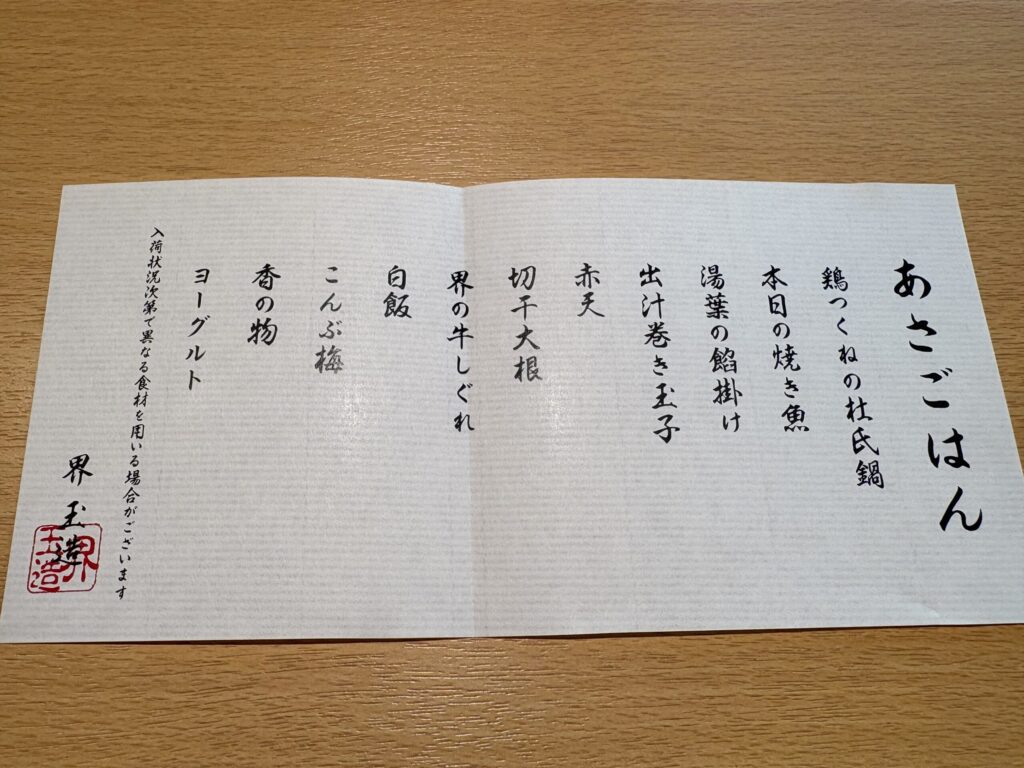 あさごはん
鶏つくねの杜氏鍋
本日の焼き魚
湯葉の餡掛け
出汁巻き玉子
赤天
切干大根
界の牛しぐれ
白飯
こんぶ梅
香の物
ヨーグルト
入荷状況次第で異なる食材を用いる場合がございます
界 玉造
界
玉造